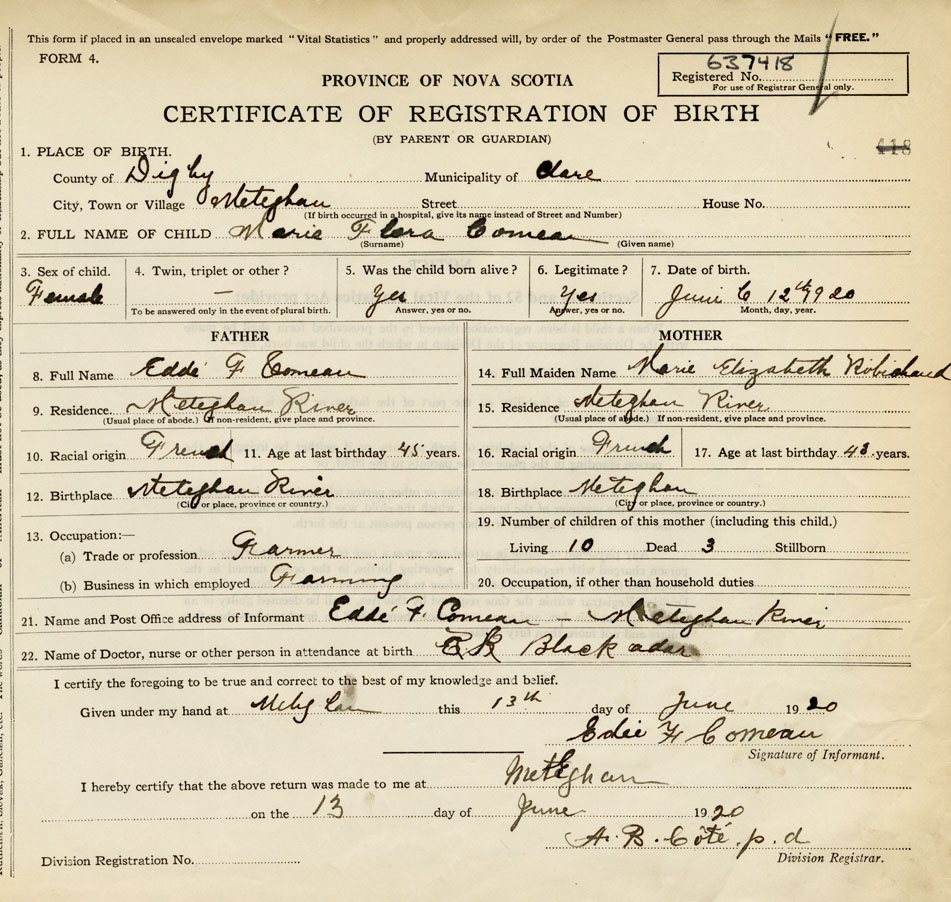 This form if placed in an unsealed envelope marked "Vital Statistics" and properly addressed will, by order of the Postmaster General pass through the Mails "FREE."
FORM 4.
637418
Registered No.
For use of Registrar General only.
PROVINCE OF NOVA SCOTIA
CERTIFICATE OF REGISTRATION OF BIRTH
(BY PARENT OR GUARDIAN)
418
1. PLACE OF BIRTH.
County of Digby Municipality of Clare
City, Town or Village Meteghan Street House No.
(If birth occurred in a hospital, give its name instead of Street and Number)
2. FULL NAME OF CHILD Marie Flora Comeau
(Surname) (Given name)
3. Sex of child. 4. Twin, triplet or other? 5. Was the child born alive? 6. Legitimate? 7. Date of birth.
Female — Yes Yes June 12th 1920
To be answered only in the event of plural birth. Answer, yes or no. Answer, yes or no. Month, day, year.
FATHER
8. Full Name Eddé F Comeau
9. Residence. Meteghan River
(Usual place of abode.) If non-resident, give place and province.
10. Racial origin French 11. Age at last birthday 45 years.
12. Birthplace Meteghan River
(City or place, province or country.)
13. Occupation:—
(a) Trade or profession Farmer
(b) Business in which employed Farming
MOTHER
14. Full Maiden Name Marie Elizabeth Robichaud
15. Residence Meteghan River
(Usual place of abode.) If non-resident, give place and province.
16. Racial origin French 17. Age at last birthday 43 years.
18. Birthplace Meteghan
(City or place, province or country.)
19. Number of children of this mother (including this child.)
Living 10 Dead 3 Stillborn
20. Occupation, if other than household duties
21. Name and Post Office address of Informant Eddé F. Comeau — Meteghan River
22. Name of Doctor, nurse or other person in attendance at birth. Blackadar
I certify the foregoing to be true and correct to the best of my knowledge and belief.
Given under my hand at Meteghan this 13th day of June 1920
Edée F Comeau
Signature of Informant.
I hereby certify that the above return was made to me at Meteghan
on the 13 day of June 1920
A. B. Côté. p. d
Division Registration No. Division Registrar.